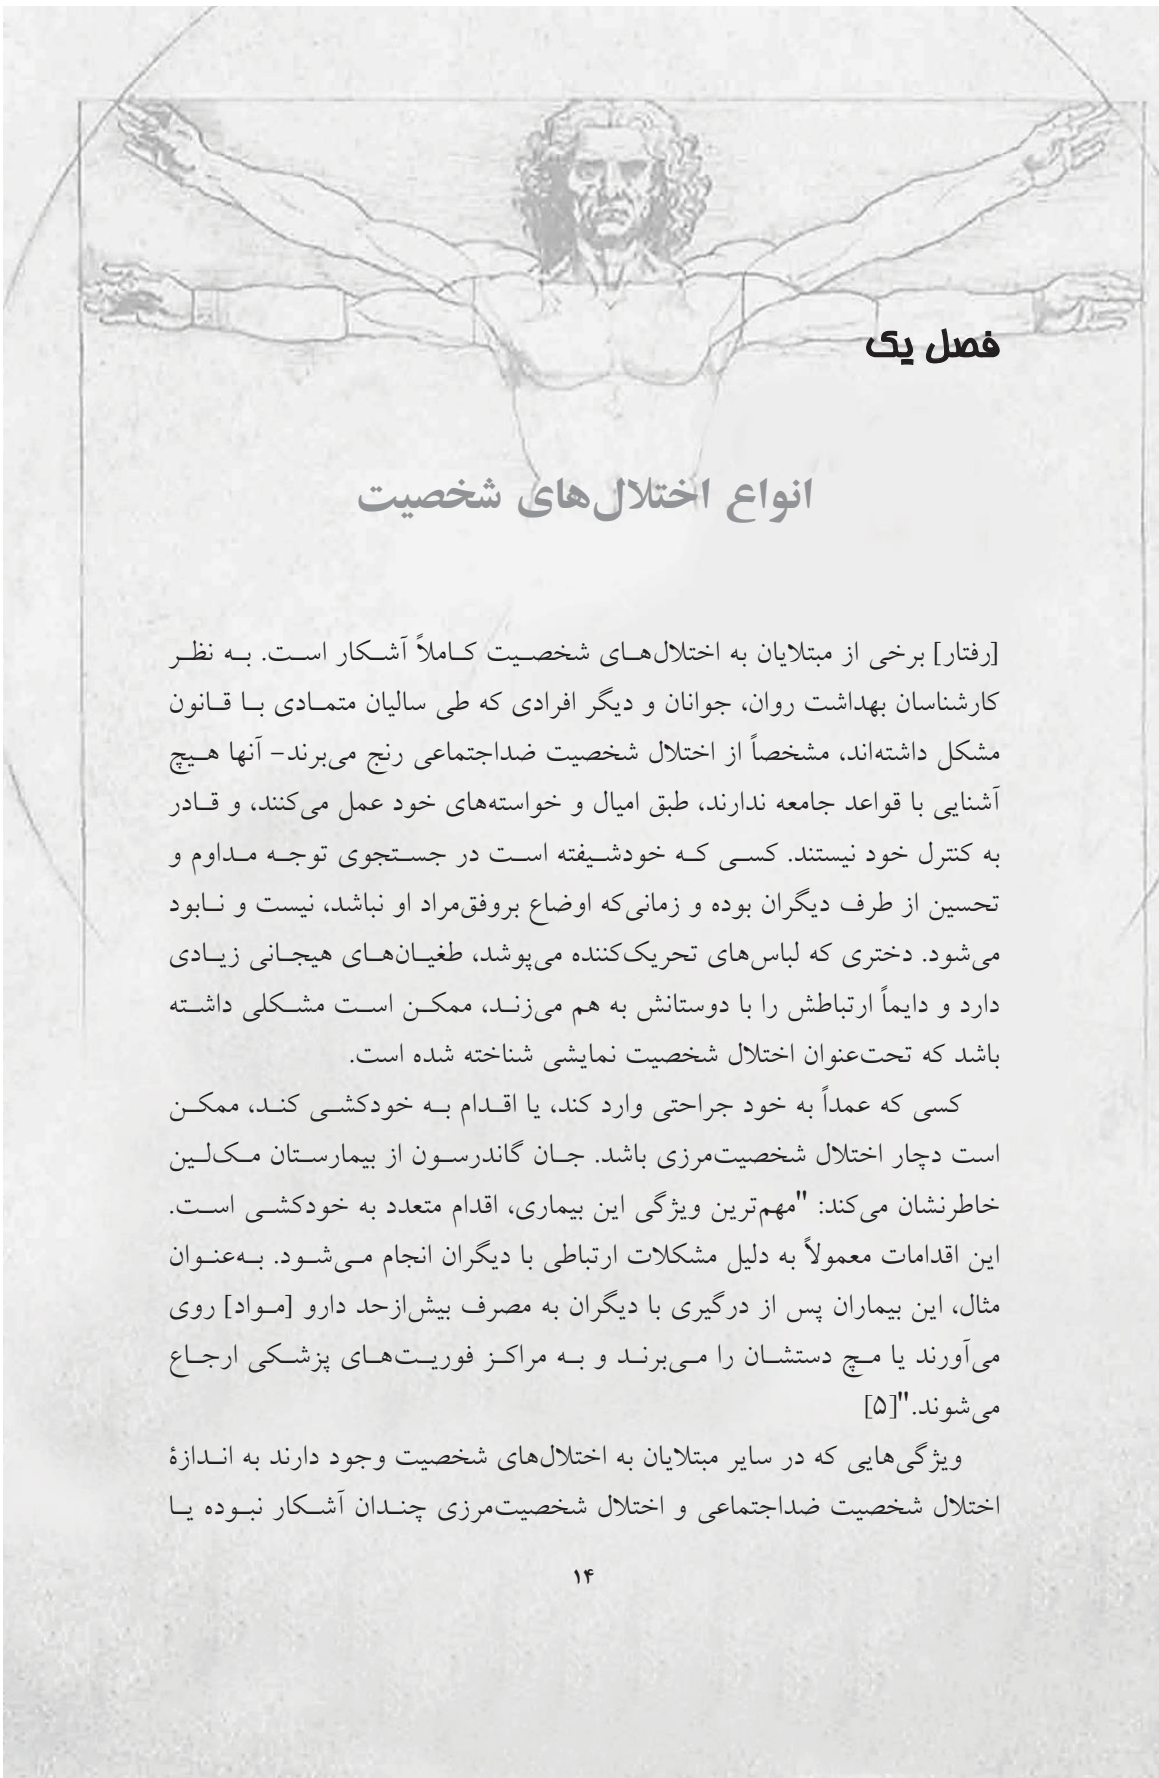 فصل یک
انواع اختلال‌های شخصیت
[رفتار] برخی از مبتلایان به اختلال‌هـای شخصـیت کـاملاً آشـکار اسـت. بـه نظـر
کارشناسان بهداشت روان، جوانان و دیگر افرادی که طی سالیان متمـادی بـا قـانون
مشکل داشته‌اند، مشخصاً از اختلال شخصیت ضداجتماعی رنج می‌برند- آنها هـیچ
آشنایی با قواعد جامعه ندارند، طبق امیال و خواسته‌های خود عمل می‌کنند، و قـادر
به کنترل خود نیستند. کسـی کـه خودشـیفته اسـت در جسـتجوی توجـه مـداوم و
تحسین از طرف دیگران بوده و زمانی‌که اوضاع بروفق‌مراد او نباشد، نیست و نـابود
می‌شود. دختری که لباس‌های تحریک‌کننده می‌پوشد، طغیـان‌هـای هیجـانی زیـادی
دارد و دایماً ارتباطش را با دوستانش به هم می‌زنـد، ممکـن اسـت مشـکلی داشـته
باشد که تحت‌عنوان اختلال شخصیت نمایشی شناخته شده است.
کسی که عمداً به خود جراحتی وارد کند، یا اقـدام بـه خودکشـی کنـد، ممکـن
است دچار اختلال شخصیت‌مرزی باشد. جـان گاندرسـون از بیمارسـتان مـک‌لـین
خاطرنشان می‌کند: "مهم‌ترین ویژگی این بیماری، اقدام متعدد به خودکشـی اسـت.
این اقدامات معمولاً به دلیل مشکلات ارتباطی با دیگران انجام مـی‌شـود. بـه‌عنـوان
مثال، این بیماران پس از درگیری با دیگران به مصرف بیش‌ازحد دارو [مـواد] روی
می‌آورند یا مـچ دستشـان را مـی‌برنـد و بـه مراکـز فوریـت‌هـای پزشـکی ارجـاع
می‌شوند."[۵]
ویژگی‌هایی که در سایر مبتلایان به اختلال‌های شخصیت وجود دارند به انـدازۀ
اختلال شخصیت ضداجتماعی و اختلال شخصیت‌مرزی چنـدان آشـکار نبـوده یـا
۱۴